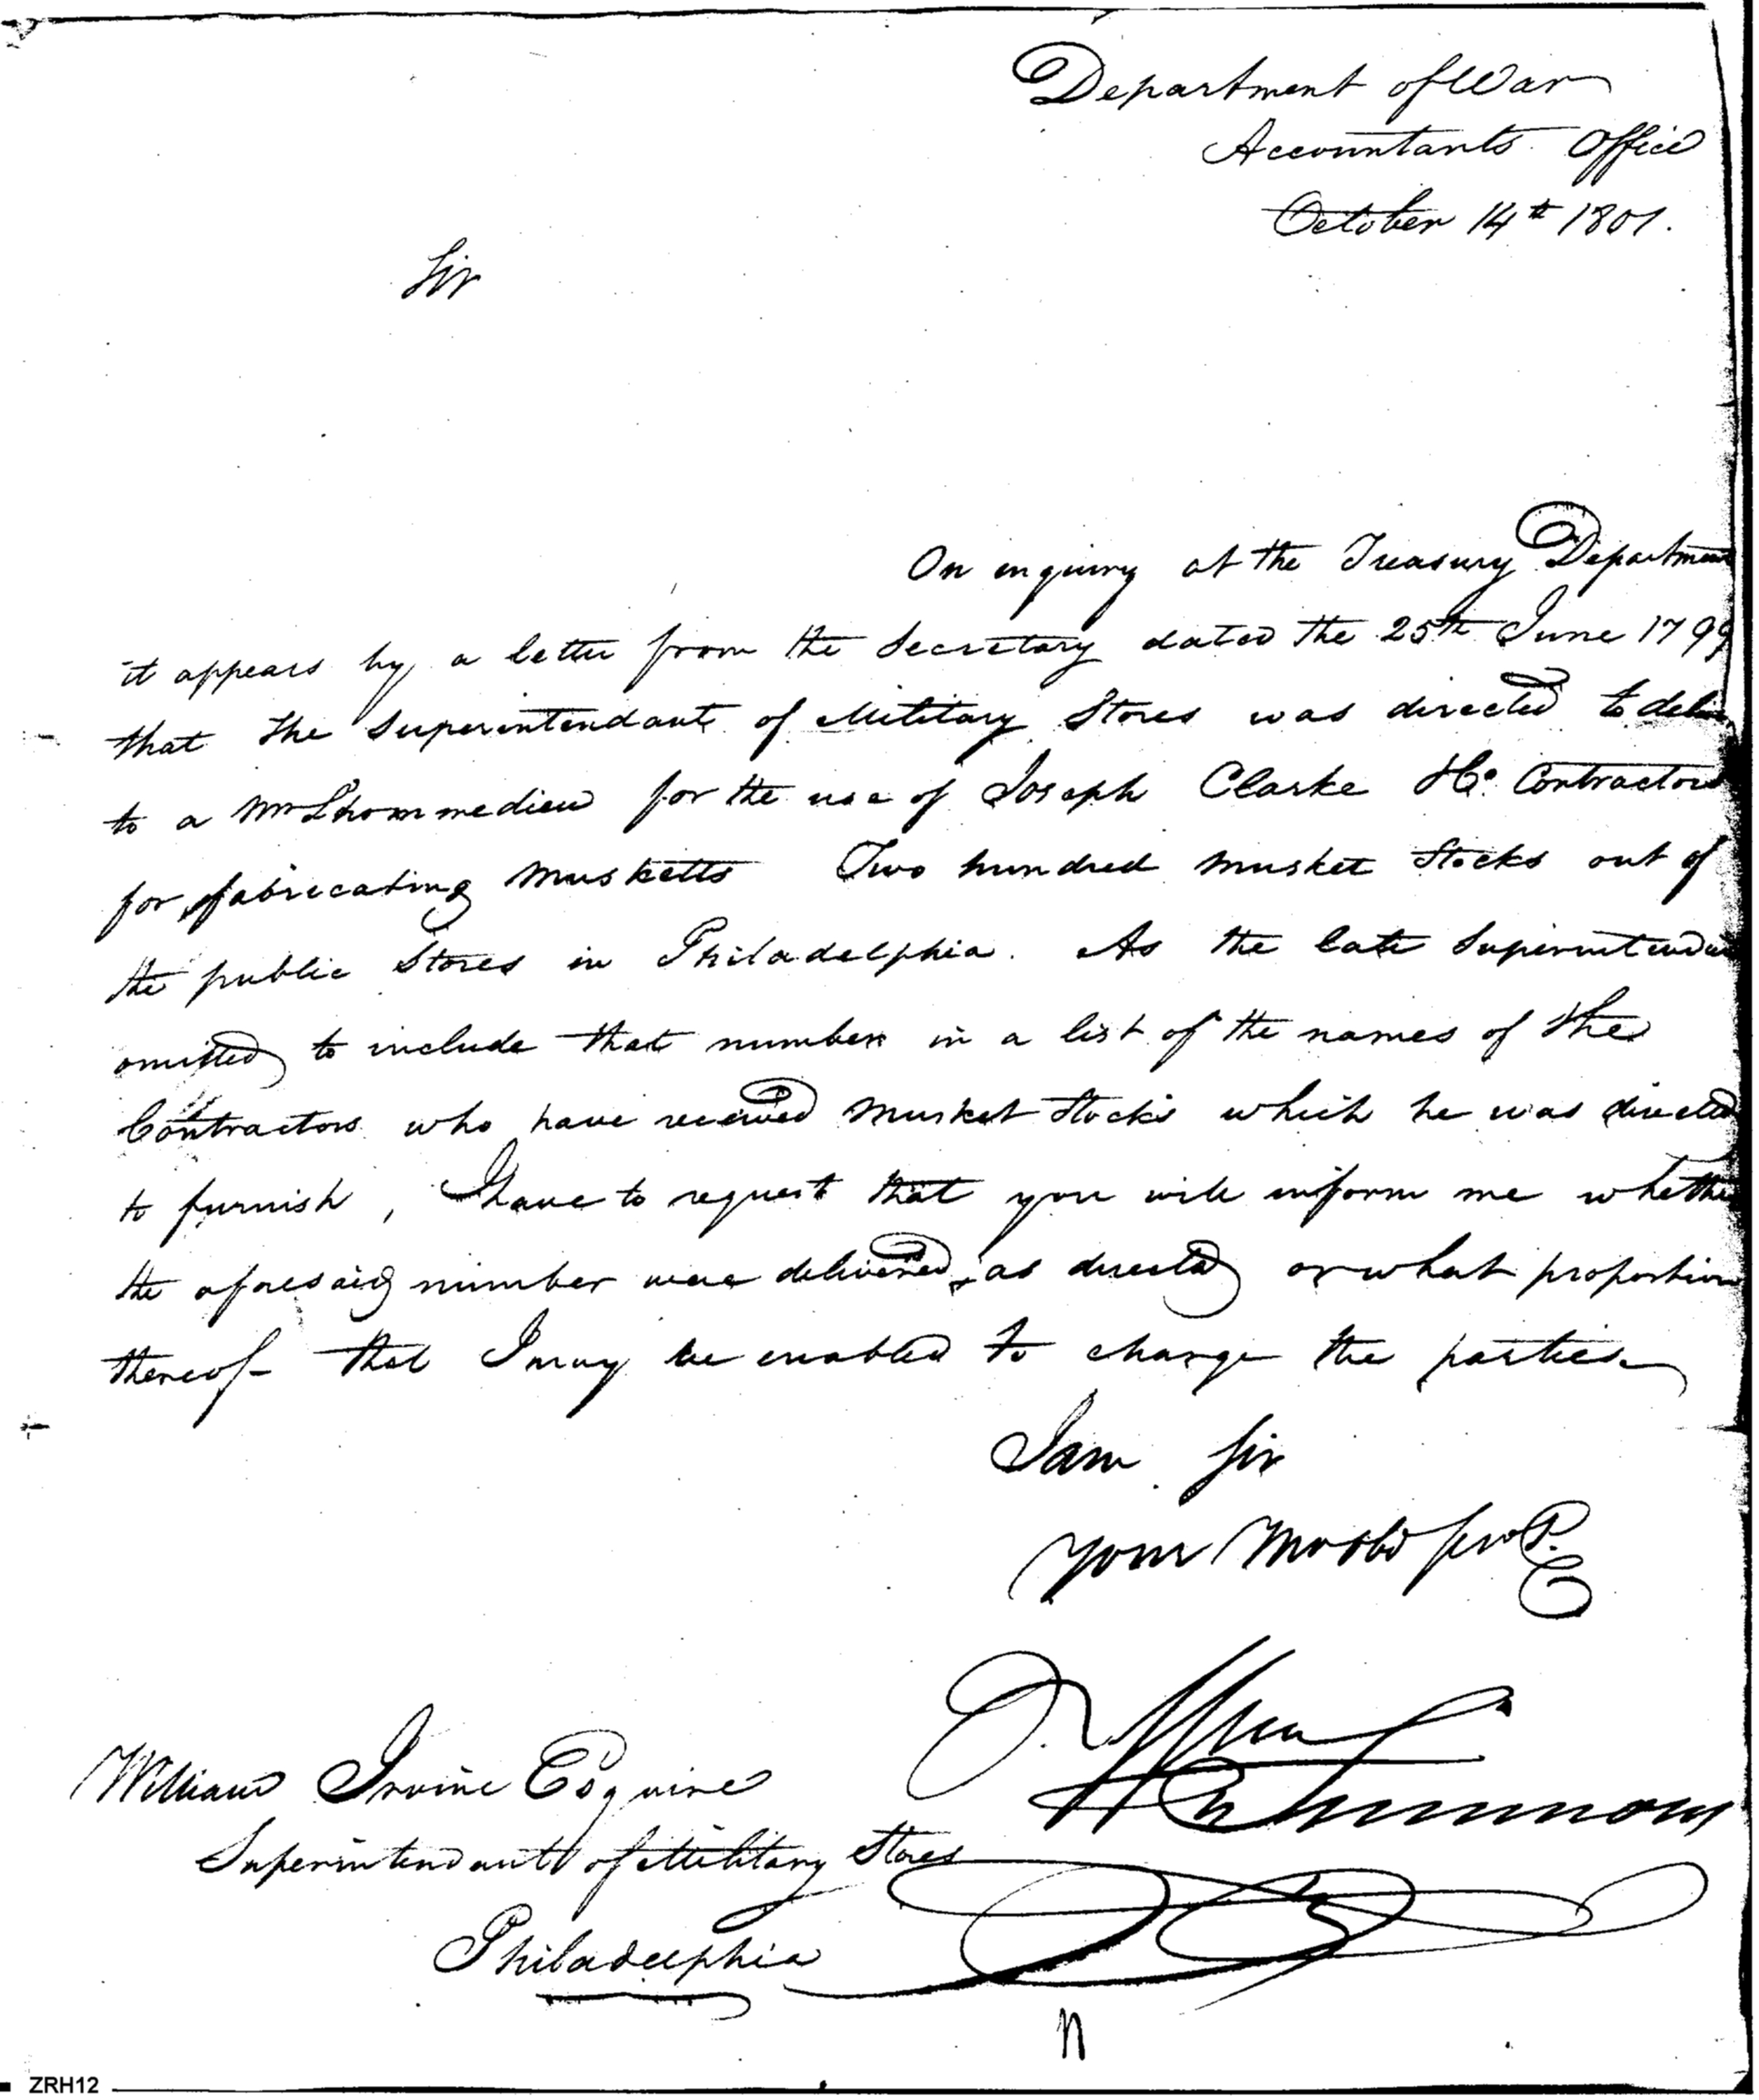 Department of War
Accountants Office
October 14th 1801.
Sir
On enquiry at the Treasury Department
it appears by a letter from the Secretary dated the 25th June 1799
that the Superintendant of Military Stores was directed to deliver
to a Mr L'hommedieu for the use of Joseph Clarke Contractors
for fabricating Musketts Two hundred Musket Stocks out of
the public Stores in Philadelphia. As the late Superintendant
omitted to include that number in a list of the names of the
Contractors who have received Musket Stocks which he was directed
to furnish, I have to request that you will inform me whether
the aforesaid number were delivered, as directed or what proportion
thereof that I may be enabled to charge the parties
I am Sir
Your Most Obd Servt.
Simmons
William Irvine Esquire
Superintendant of Military Stores
Philadelphia
n
ZRH12